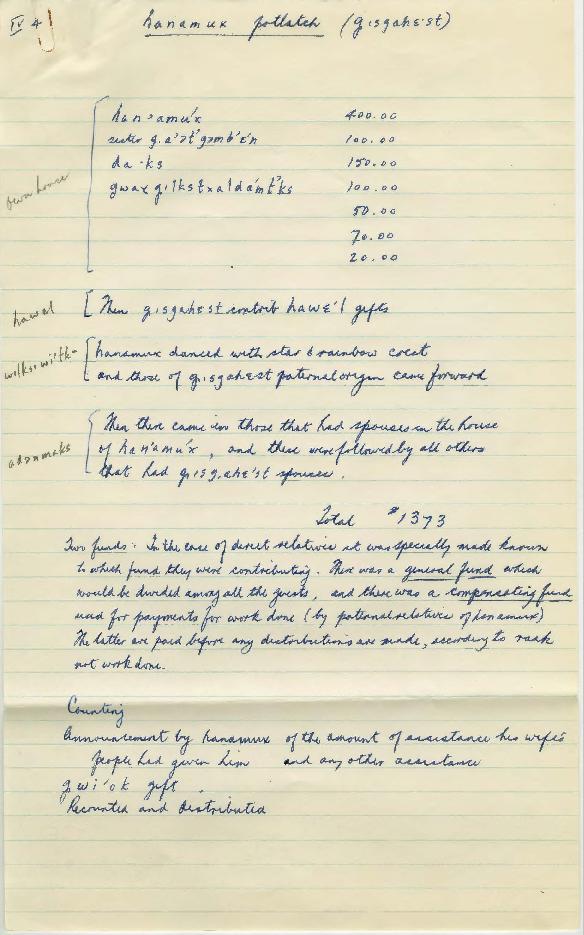 IV 4 hanamux potlatch (gisgahɛst)
han'amu'x 400.00
sister g.a'ət'gəmb'ɛ'n 100.00
da·ks 150.00
gwax gilkstxaldámt'ks 100.00
50.00
70.00
20.00
own house
hawal [ Then gisgahɛst contrib hawɛ'l gifts
wilksiwitk- hanamux danced with star & rainbow crest
and those of gisgahɛst paternal origin came forward
Then there came in those that had spouses in the house
adənmaks of han'amu'x, and these were followed by all others
that had gisgahɛ'st spouses.
Total $1373
Two funds: In the case of direct relatives it was specially made known
to which fund they were contributing. There was a general fund which
would be divided among all the guests, and there was a compensating fund
used for payments for work done (by paternal relatives of hanamux)
The latter are paid before any distributions are made, according to rank
not work done.
Counting
Announcement by hanamux of the amount of assistance his wife's
people had given him and any other assistance
gwi'ok gift.
Recounted and distributed